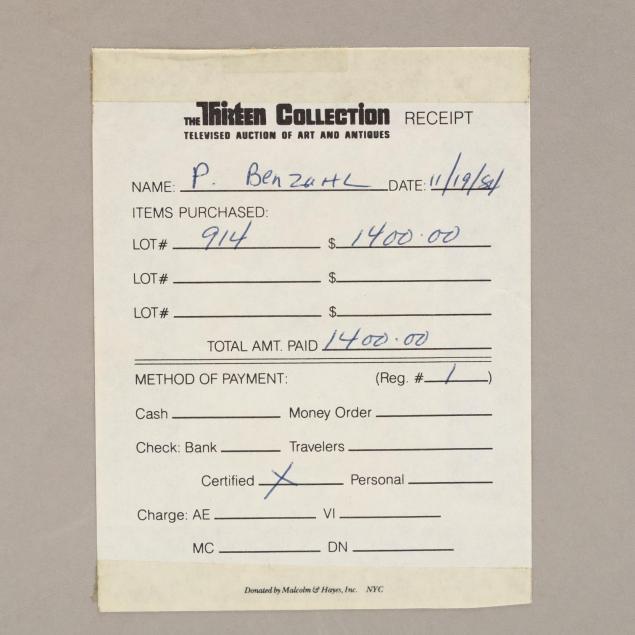 THE THIRTEEN COLLECTION RECEIPT
TELEVISED AUCTION OF ART AND ANTIQUES
NAME: P. Benzahl DATE: 11/19/84
ITEMS PURCHASED:
LOT# 914 $ 1400.00
LOT# $
LOT# $
TOTAL AMT. PAID 1400.00
METHOD OF PAYMENT: (Reg. # 1 )
Cash Money Order
Check: Bank Travelers
Certified X Personal
Charge: AE VI
MC DN
Donated by Malcolm & Hayes, Inc. NYC